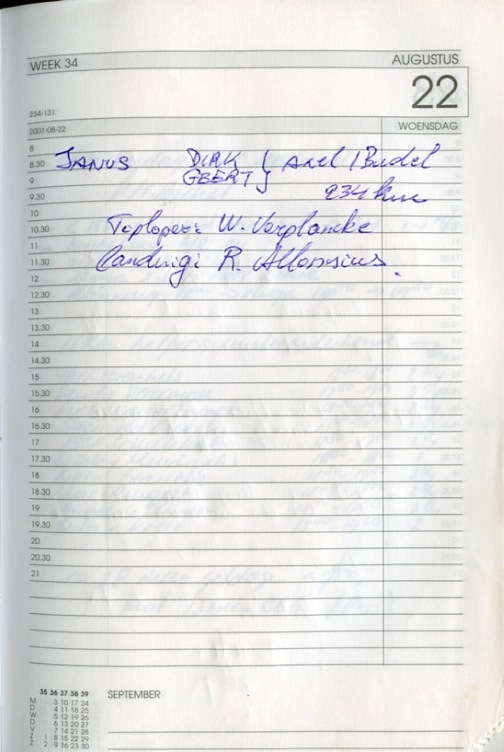 WEEK 34 AUGUSTUS
22
234-131
2001-08-22 WOENSDAG
8
8.30 JANUS DIRK { Axel / Budel
9 GEERT }
9.30 234 km
10
10.30 Toplopers W. Verplancke
11
11.30 R. Alloisius.
12
12.30
13
13.30
14
14.30
15
15.30
16
16.30
17
17.30
18
18.30
19
19.30
20
20.30
21
35 36 37 38 39 SEPTEMBER
M 3 10 17 24
D 4 11 18 25
W 5 12 19 26
D 6 13 20 27
V 7 14 21 28
Z 1 8 15 22 29
Z 2 9 16 23 30